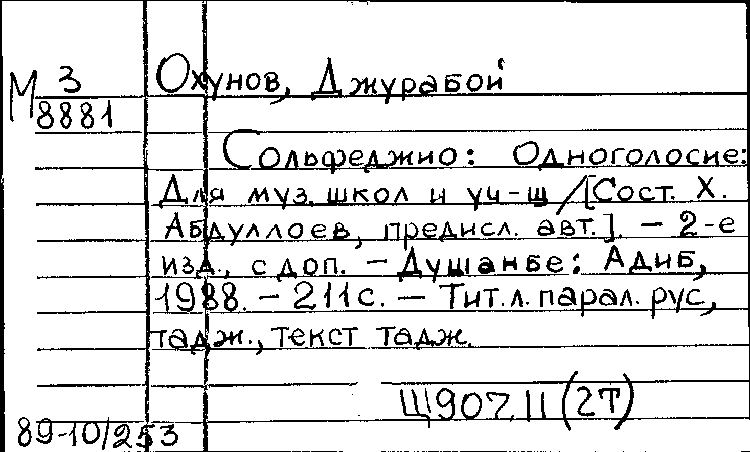 М 3
8881
Охунов, Джурабой
Сольфеджио: Одноголосие:
Для муз. школ и уч-щ /[Сост. Х.
Абдуллоев, предисл. авт.]. — 2-е
изд., с доп. — Душанбе: Адиб,
1988. — 211 с. — Тит. л. парал. рус.,
тадж., текст тадж.
Щ907.11(2Т)
89-10/253